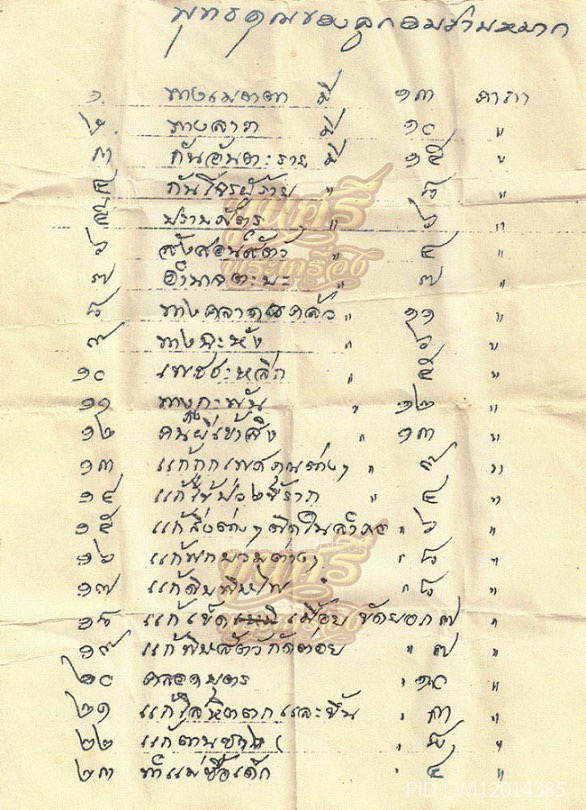 พุทธคุณของลูกอมชานหมาก
๑. ทางเมตตา มี ๑๓ คาถา
๒. ทางลาภ มี ๑๐ "
๓ กันอันตะราย มี ๑๕ "
๔ กันโจรผู้ร้าย " ๘ "
๕ " ๖ "
๖ สั่งสอนสัตว์ " ๕ "
๗ อำนาจตะบะ " ๗ "
๘ ทางคลาดแคล้ว " ๑๑ "
๙ ทางจะหัง " ๖ "
๑๐ เพชชะหลีก " ๕ "
๑๑ ทางกะพัน " ๑๒ "
๑๒ คนผีเข้าสิง " ๑๓ "
๑๓ แก้ถูกเพศคุณต่างๆ " ๙ "
๑๔ แก้ไข้ " ๔ "
๑๕ แก้สิ่งต่างๆติดในลำคอ " ๖ "
๑๖ แก้ฟกบวมต่างๆ " ๘ "
๑๗ แก้ดับพิษไฟ " ๘ "
๑๘ แก้ เมื่อย ขัดยอก ๗ "
๑๙ แก้พิษสัตว์กัดต่อย " ๗ "
๒๐ คลอดบุตร " ๑๐ "
๒๑ แก้โลหิตตกและขึ้น " ๓ "
๒๒ แก้ตานซาง " ๘ "
๒๓ ทำแม่ซื้อเด็ก " ๔ "
พระเครื่อง
พระเครื่อง
PID : WI12014385